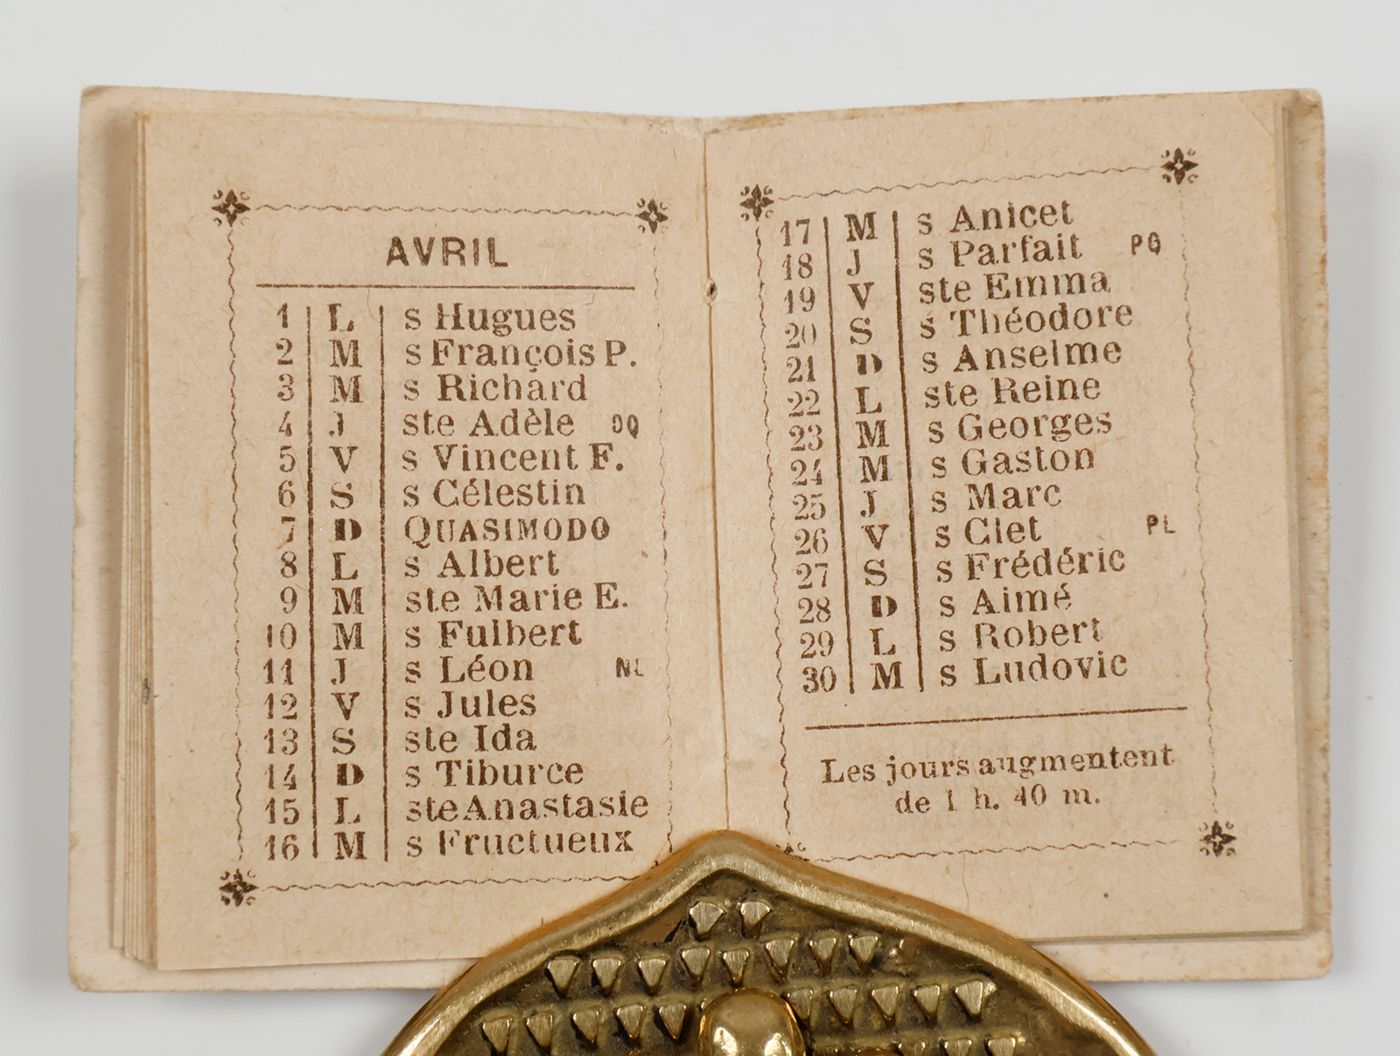 AVRIL
1 L s Hugues
2 M s François P.
3 M s Richard
4 J ste Adèle DQ
5 V s Vincent F.
6 S s Célestin
7 D QUASIMODO
8 L s Albert
9 M ste Marie E.
10 M s Fulbert
11 J s Léon NL
12 V s Jules
13 S ste Ida
14 D s Tiburce
15 L ste Anastasie
16 M s Fructueux
17 M s Anicet
18 J s Parfait PQ
19 V ste Emma
20 S s Théodore
21 D s Anselme
22 L ste Reine
23 M s Georges
24 M s Gaston
25 J s Marc
26 V s Clet PL
27 S s Frédéric
28 D s Aimé
29 L s Robert
30 M s Ludovic
Les jours augmentent
de 1 h. 40 m.